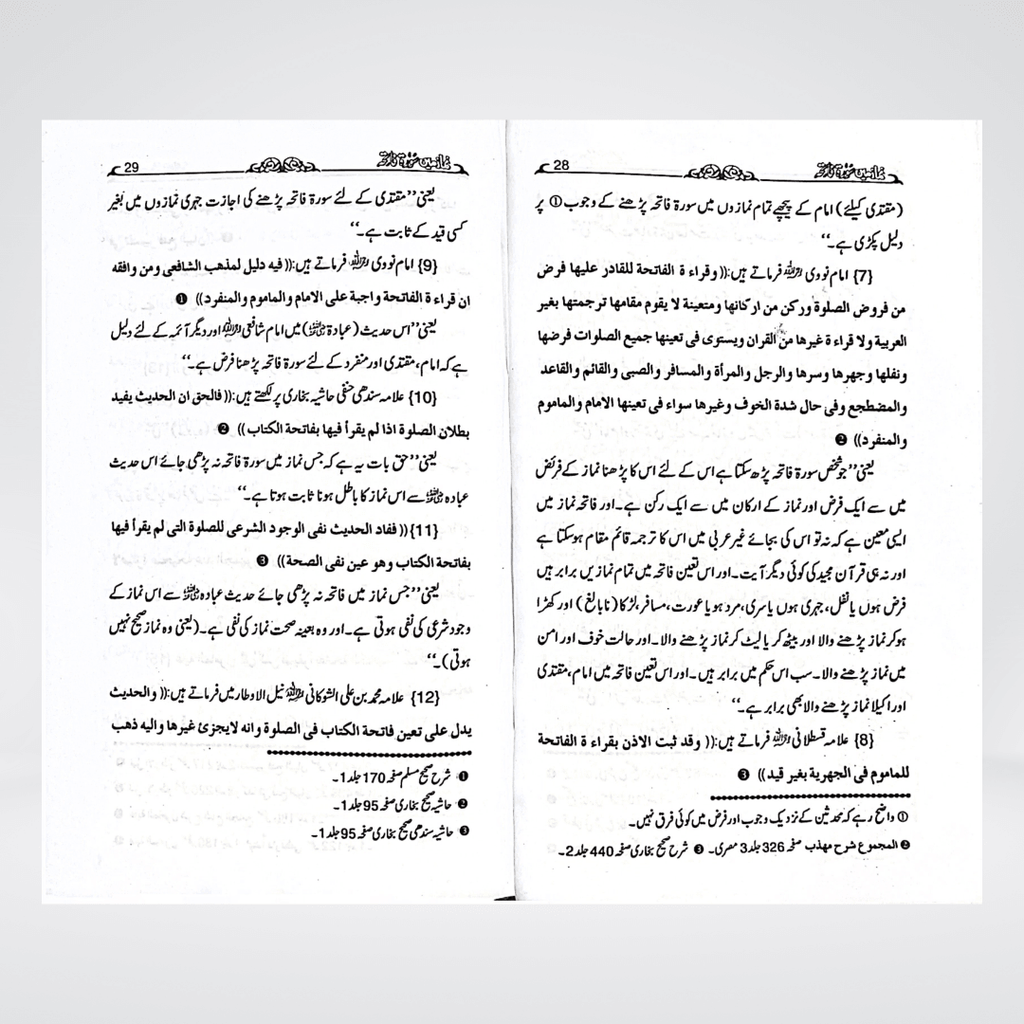 نماز میں سورۃ فاتحہ
28
(مقتدی کیلئے) امام کے پیچھے تمام نمازوں میں سورۃ فاتحہ پڑھنے کے وجوب ① پر
دلیل پکڑی ہے۔‘‘
{7} امام نووی رحمہ اللہ فرماتے ہیں:(( وقراء ة الفاتحة للقادر عليها فرض
من فروض الصلوة وركن من اركانها ومتعينة لا يقوم مقامها ترجمتها بغير
العربية ولا قراء ة غيرها من القران ويستوى فى تعينها جميع الصلوات فرضها
ونفلها وجهرها وسرها والرجل والمرأة والمسافر والصبى والقائم والقاعد
والمضطجع وفى حال شدة الخوف وغيرها سواء فى تعينها الامام والماموم
والمنفرد)) ❷
یعنی’’جو شخص سورۃ فاتحہ پڑھ سکتا ہے اس کے لئے اس کا پڑھنا نماز کے فرائض
میں سے ایک فرض اور نماز کے ارکان میں سے ایک رکن ہے۔اور فاتحہ نماز میں
ایسی معین ہے کہ نہ تو اس کی بجائے غیر عربی میں اس کا ترجمہ قائم مقام ہوسکتا ہے
اور نہ ہی قرآن مجید کی کوئی دیگر آیت۔اور اس تعین فاتحہ میں تمام نمازیں برابر ہیں
فرض ہوں یا نفل، جہری ہوں یا سری، مرد ہو یا عورت، مسافر، لڑکا (نابالغ) اور کھڑا
ہو کر نماز پڑھنے والا اور بیٹھ کر یا لیٹ کر نماز پڑھنے والا۔اور حالت خوف اور امن
میں نماز پڑھنے والا۔ سب اس حکم میں برابر ہیں۔اور اس تعین فاتحہ میں امام، مقتدی
اور اکیلا نماز پڑھنے والا بھی برابر ہے۔‘‘
{8} علامہ قسطلانی رحمہ اللہ فرماتے ہیں:(( وقد ثبت الاذن بقراء ة الفاتحة
للماموم فى الجهرية بغير قيد)) ❸
① واضح رہے کہ محدثین کے نزدیک وجوب اور فرض میں کوئی فرق نہیں۔
❷ المجموع شرح مہذب صفحہ 326 جلد 3 مصری۔ ❸ شرح صحیح بخاری صفحہ 440 جلد 2۔
نماز میں سورۃ فاتحہ
29
یعنی’’مقتدی کے لئے سورۃ فاتحہ پڑھنے کی اجازت جہری نمازوں میں بغیر
کسی قید کے ثابت ہے۔‘‘
{9} امام نووی رحمہ اللہ فرماتے ہیں:(( فيه دليل لمذهب الشافعى ومن وافقه
ان قراء ة الفاتحة واجبة على الامام والماموم والمنفرد)) ❶
یعنی’’اس حدیث (عبادۃ رضی اللہ عنہ) میں امام شافعی رحمہ اللہ اور دیگر آئمہ کے لئے دلیل
ہے کہ امام، مقتدی اور منفرد کے لئے سورۃ فاتحہ پڑھنا فرض ہے۔‘‘
{10} علامہ سندھی حنفی حاشیہ بخاری پر لکھتے ہیں:(( فالحق ان الحديث يفيد
بطلان الصلوة اذا لم يقرأ فيها بفاتحة الكتاب)) ❷
یعنی’’حق بات یہ ہے کہ جس نماز میں سورۃ فاتحہ نہ پڑھی جائے اس حدیث
عبادہ رضی اللہ عنہ سے اس نماز کا باطل ہونا ثابت ہوتا ہے۔‘‘
{11}(( ففاد الحديث نفى الوجود الشرعى للصلوة التى لم يقرأ فيها
بفاتحة الكتاب وهو عين نفى الصحة)) ❸
یعنی’’جس نماز میں فاتحہ نہ پڑھی جائے حدیث عبادہ رضی اللہ عنہ سے اس نماز کے
وجود شرعی کی نفی ہوتی ہے۔اور وہ بعینہ صحت نماز کی نفی ہے۔(یعنی وہ نماز صحیح نہیں
ہوتی)۔‘‘
{12} علامہ محمد بن علی الشوکانی رحمہ اللہ نیل الاوطار میں فرماتے ہیں:(( والحديث
يدل على تعين فاتحة الكتاب فى الصلوة وانه لايجزئ غيرها واليه ذهب
❶ شرح صحیح مسلم صفحہ 170 جلد 1۔
❷ حاشیہ صحیح بخاری صفحہ 95 جلد 1۔
❸ حاشیہ سندھی صحیح بخاری صفحہ 95 جلد 1۔